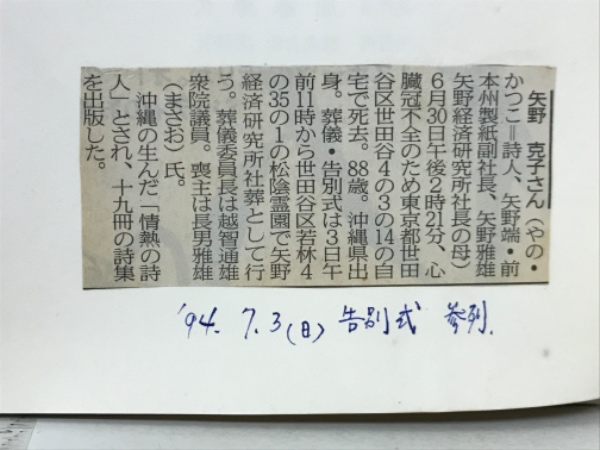 矢野　克子さん（やの・
かつこ＝詩人、矢野端・前
本州製紙副社長、矢野雅雄
矢野経済研究所社長の母）
6月30日午後2時21分、心
臓冠不全のため東京都世田
谷区世田谷4の3の14の自
宅で死去。88歳。沖縄県出
身。葬儀・告別式は3日午
前11時から世田谷区若林4
の35の1の松陰霊園で矢野
経済研究所社葬として行
う。葬儀委員長は越智通雄
衆院議員。喪主は長男雅雄
（まさお）氏。
　沖縄の生んだ「情熱の詩
人」とされ、十九冊の詩集
を出版した。
'94. 7.3(日) 告別式 参列.